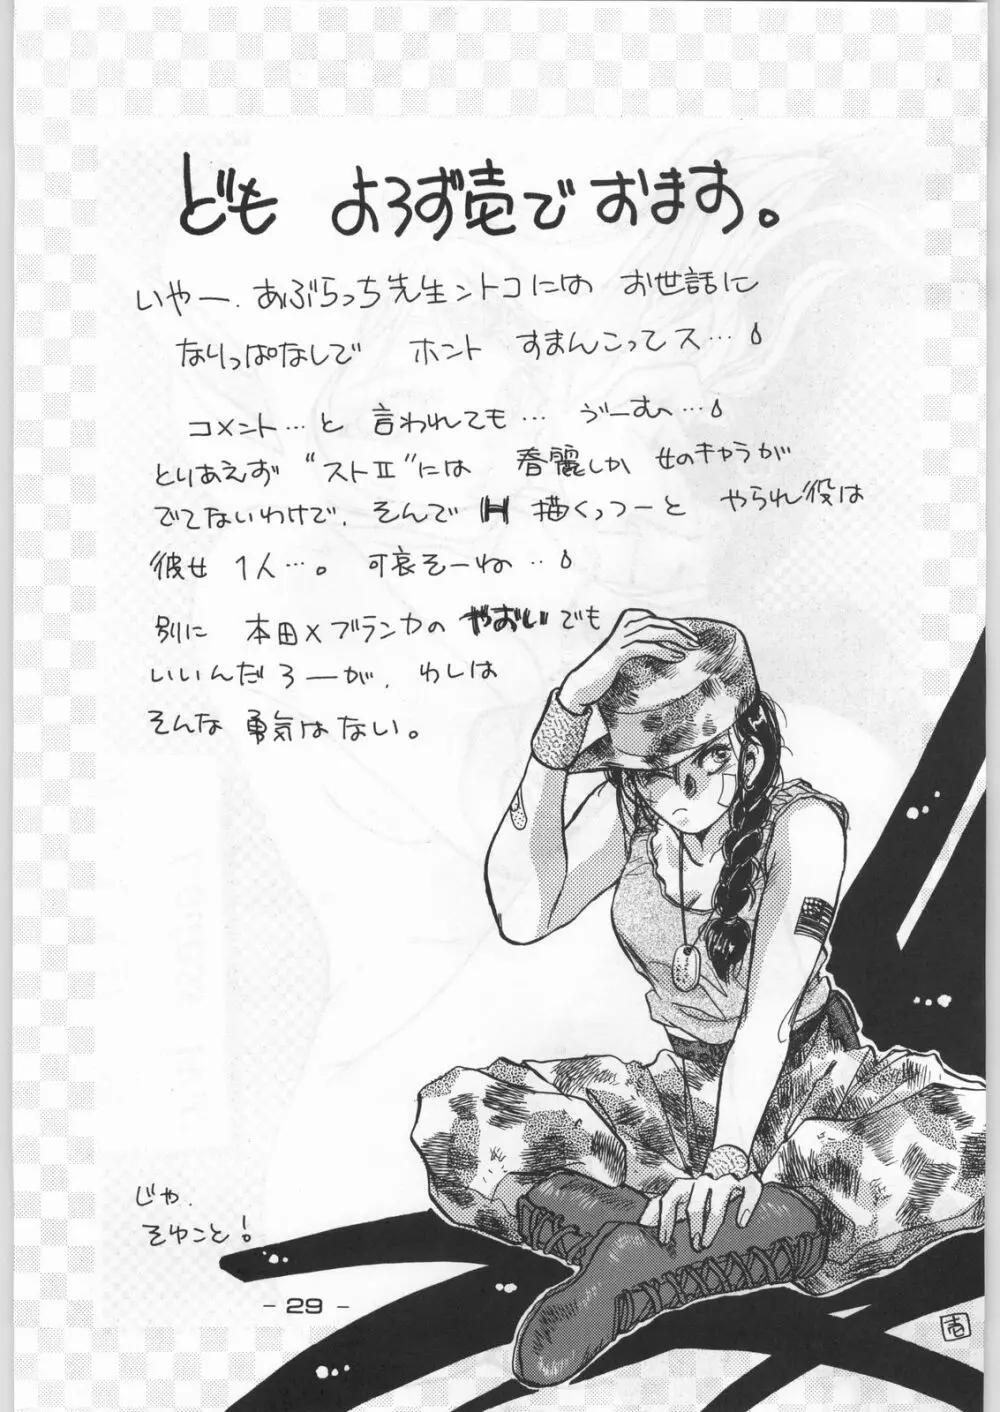 ども よろず壱でおます。
いやー、あぶらっち先生ントコには お世話に
なりっぱなしで ホント すまんこってス…
コメント…と 言われても… ゔーむ…
とりあえず “ストⅡ”には 春麗しか 女のキャラが
でてないわけで、そんで H 描くっつーと やられ役は
彼女 1人…。 可哀そーね‥
別に 本田×ブランカの やおいでも
いいんだろーが、わしは
そんな 勇気はない。
じゃ、
そゆこと!
- 29 -
壱